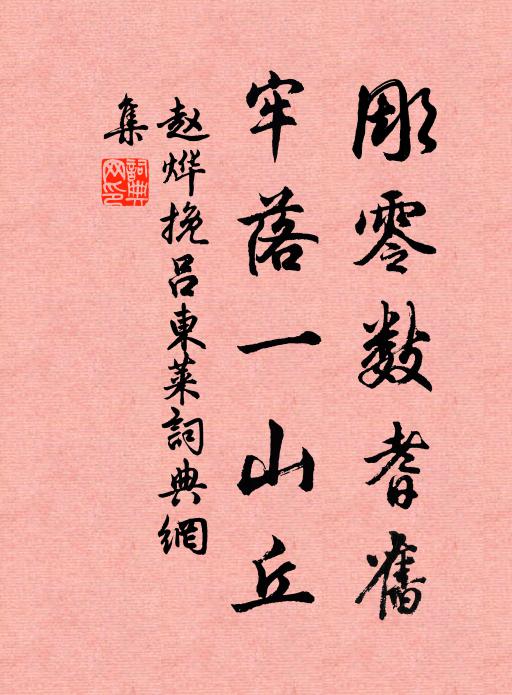 彫零数耆舊
牢落一山丘
赵烨挽吕東萊詞典網
集
詞典網印